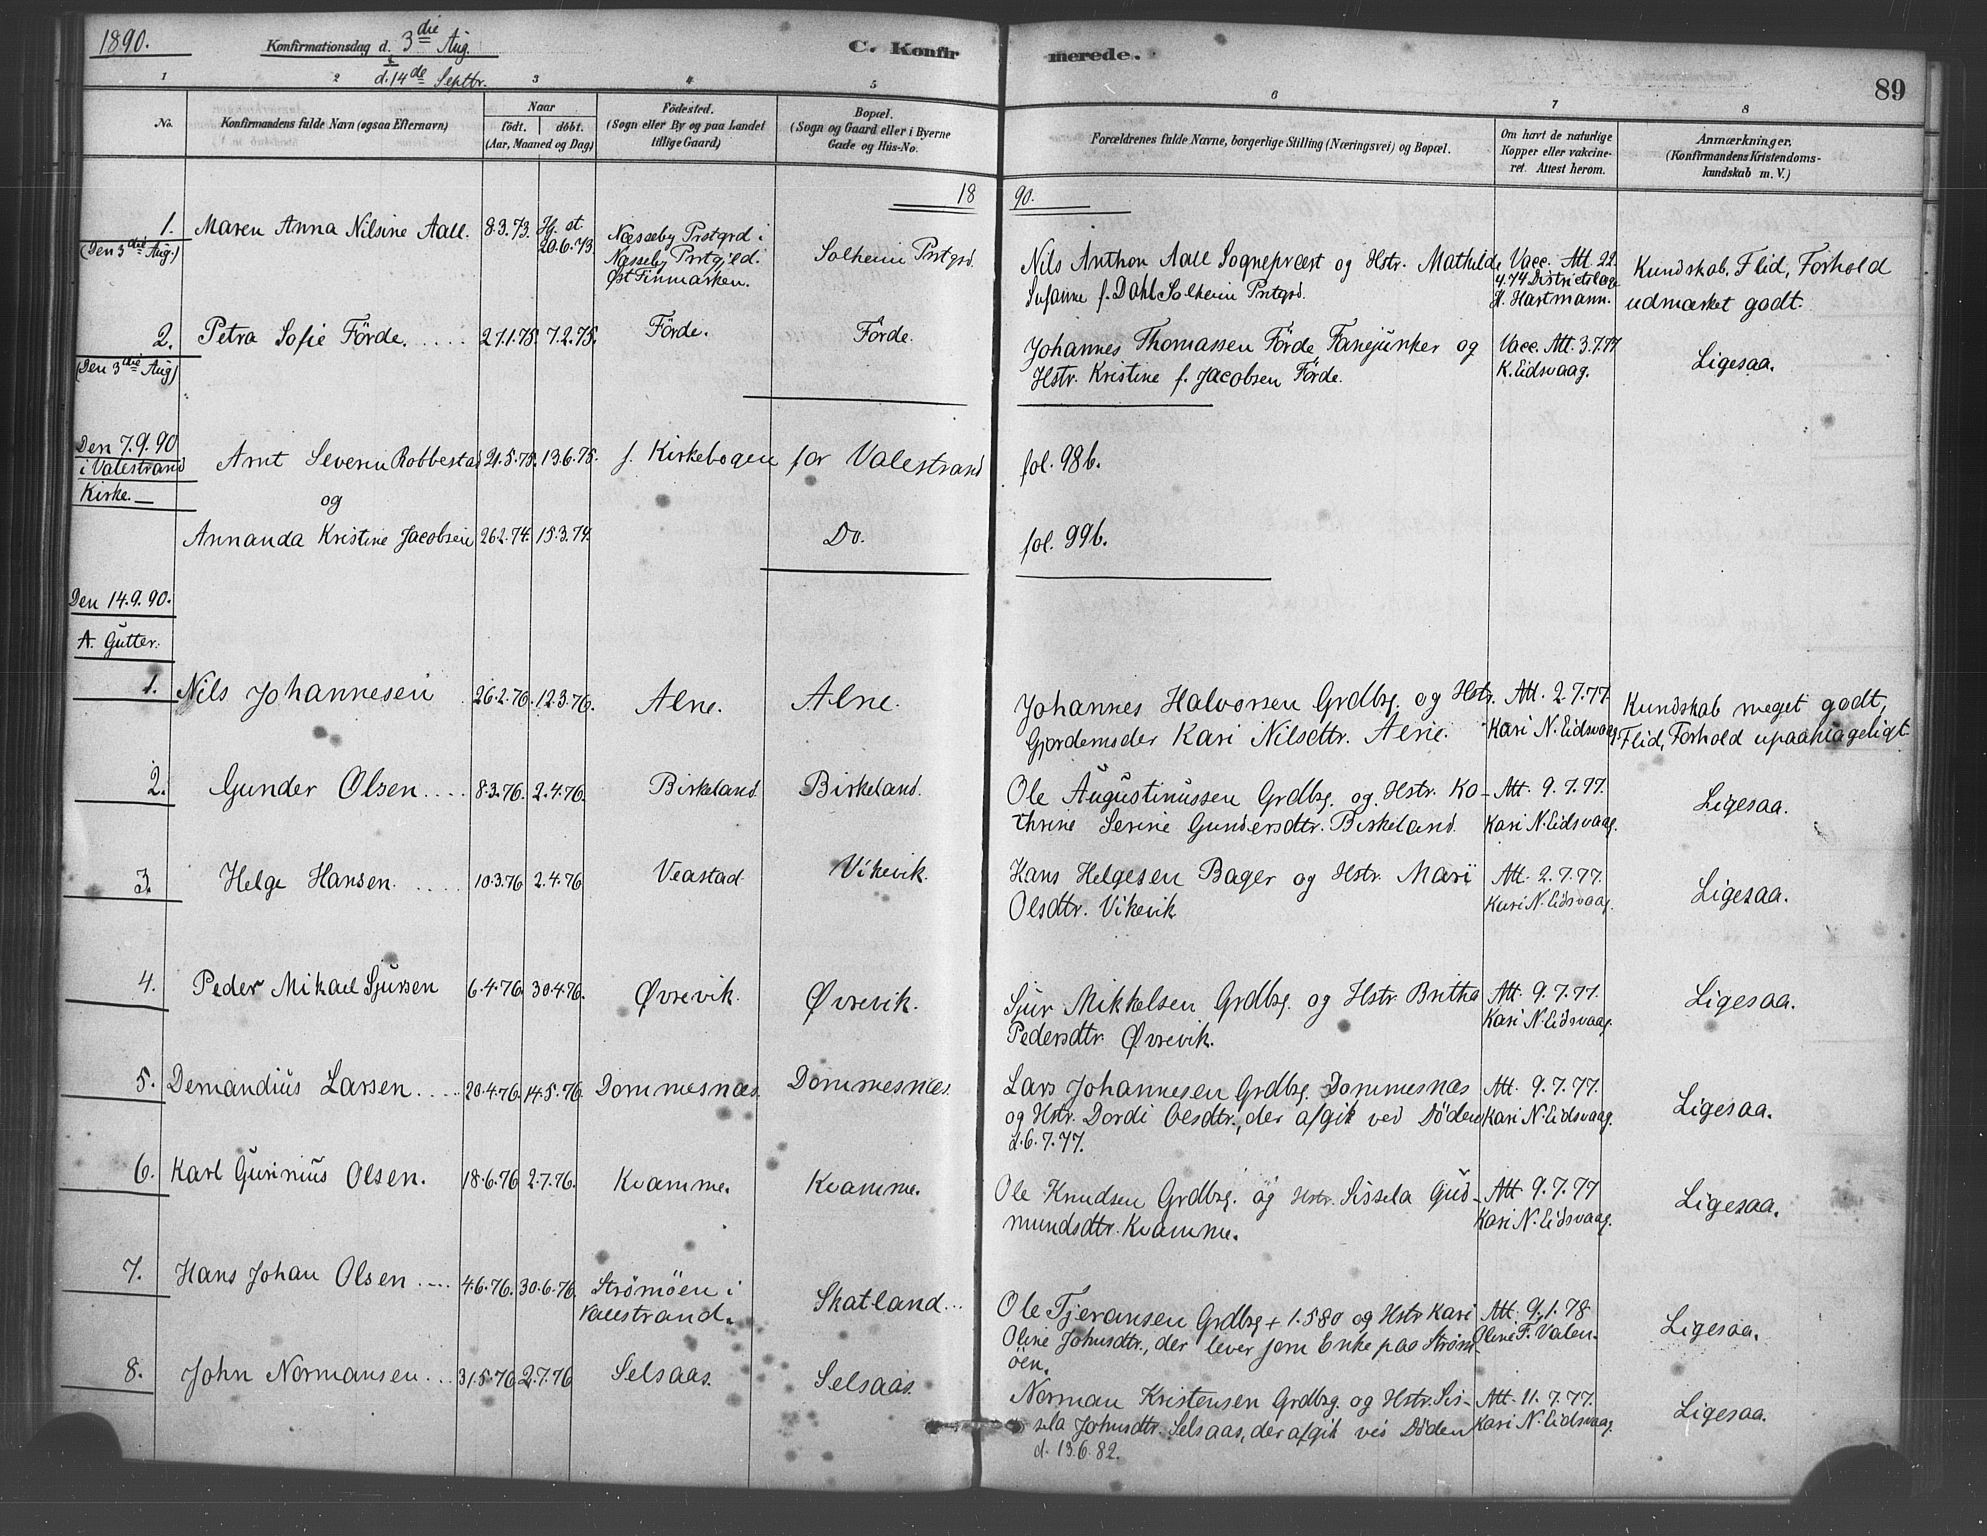 1890. Konfirmationsdag d. 3die Aug. C. Konfirmerede. 89
& d. 14de Septbr.
1 2 3 4 5 6 7 8
No. Konfirmandens fulde Navn (ogsaa Efternavn) Naar født. døbt. (Aar, Maaned og Dag) Fødested. (Sogn eller By og paa Landet tillige Gaard) Bopæl. (Sogn og Gaard eller i Byerne Gade og Hus-No. Forældrenes fulde Navne, borgerlige Stilling (Næringsvei) og Bopæl. Om havt de naturlige Kopper eller vakcineret. Attest herom. Anmærkninger. (Konfirmandens Kristendomskundskab m. V.)
1890.
1. Maren Anna Nilsine Aall. 8.3.73. Hj. st. 20.6.73. Næsseby Prstgrd i Solheim Prstgrd.
(Den 3die Aug.) Næsseby Prstgjeld. Øst Finmarken.
Nils Anthon Aall Sognepræst og Hstr. Mathilde Vacc. Att. 22. Kundskab, Flid, Forhold
Susanne f. Dahl Solheim Prstgrd. 4.74 Districtslæge H. Hartmann. udmærket godt.
2. Petra Sofie Förde. 27.1.75. 7.2.75. Förde. Förde. Johannes Thomassen Förde Fanejunker og Vacc. Att. 3.7.77
(Den 3die Aug) Hstr. Kristine f. Jacobsen Förde. K. Eidsvaag. Ligesaa.
Den 7.9.90 i Valestrand Kirke.
Arnt Severin Robbestad 21.5.75. 13.6.75. f. Kirkebogen for Valestrand fol. 98b.
og
Annanda Kristine Jacobsen 26.2.74. 15.3.74. Do. fol. 99b.
Den 14.9.90.
A. Gutter.
1. Nils Johannesen 26.2.76. 12.3.76. Alne. Alne. Johannes Halvorsen Grdbrg. og Hstr. Att. 2.7.77. Kundskab meget godt,
Gjordemoder Kari Nilsdttr. Alne. Kari N. Eidsvaag. Flid, Forhold upaaklageligt
2. Gunder Olsen 8.3.76. 2.4.76. Birkeland Birkeland. Ole Augustinussen Grdbrg. og Hstr. Ka- Att. 9.7.77. Ligesaa.
thrine Serine Gundersdttr. Birkeland. Kari N. Eidsvaag.
3. Helge Hansen. 10.3.76 2.4.76 Veastad Vikevik. Hans Helgesen Bager og Hstr. Mari Att. 2.7.77. Ligesaa.
Olsdttr. Vikevik Kari N. Eidsvaag.
4. Peder Mikael Sjursen 6.4.76. 30.4.76. Øvrevik. Øvrevik. Sjur Mikkelsen Grdbrg. og Hstr. Britha Att. 9.7.77. Ligesaa.
Pedersdtr. Øvrevik. Kari N. Eidsvaag.
5. Demandius Larsen 20.4.76. 14.5.76. Dommesnæs. Dommesnæs. Lars Johannesen Grdbrg. Dommesnæs Att. 9.7.77. Ligesaa.
og Hstr. Dordi Olsdttr., der afgik ved Döden Kari N. Eidsvaag.
d. 6.7.77.
6. Karl Gurinius Olsen. 18.6.76 2.7.76. Kvamme. Kvamme. Ole Knudsen Grdbrg. og Hstr. Sissela Gud- Att. 9.7.77 Ligesaa.
mundsdttr. Kvamme. Kari N. Eidsvaag.
7. Hans Johan Olsen 4.6.76. 30.6.76. Strømöen i Valestrand. Skatland... Ole Tjeransen Grdbrg + 1.5 80 og Hstr Kari Att. 9.1.78 Ligesaa.
Oline Johnsdttr., der lever som Enke paa Strøm- Oline F. Valen.
öen.
8. John Normansen 31.5.76 2.7.76 Selsaas. Selsaas. Norman Kristensen Grdbrg. og Hstr. Sis- Att. 11.7.77. Ligesaa.
sela Johnsdttr. Selsaas, der afgik ved Döden Kari N. Eidsvaag.
d. 13.6.82.